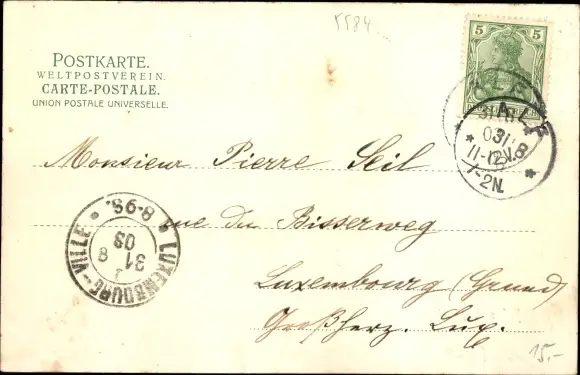 5584
5 5
POSTKARTE.
WELTPOSTVEREIN.
CARTE-POSTALE.
UNION POSTALE UNIVERSELLE.
ALF
11-12V.
1-2N.
Monsieur Pierre Seil
rue du Bisserweg
Luxembourg (Grund)
Großherz. Lux.
LUXEMBOURG-VILLE
8-9S.
31
8
03
15.-